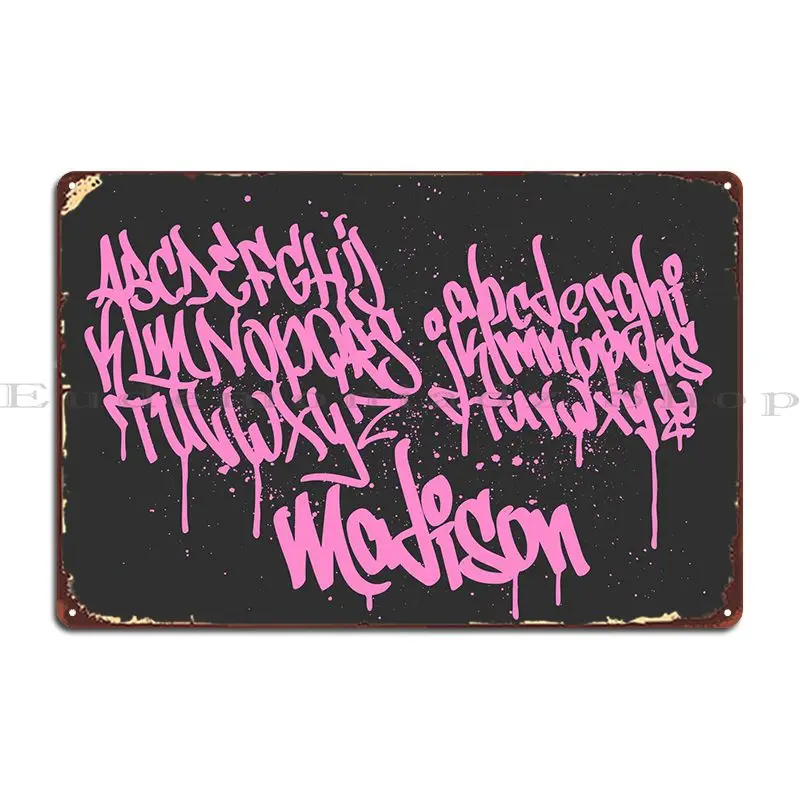 ABCDEFGHIJ
KLMNOPQRS
TUVWXYZ
abcdefghi
jklmnopqrs
tuvwxyz
Madison